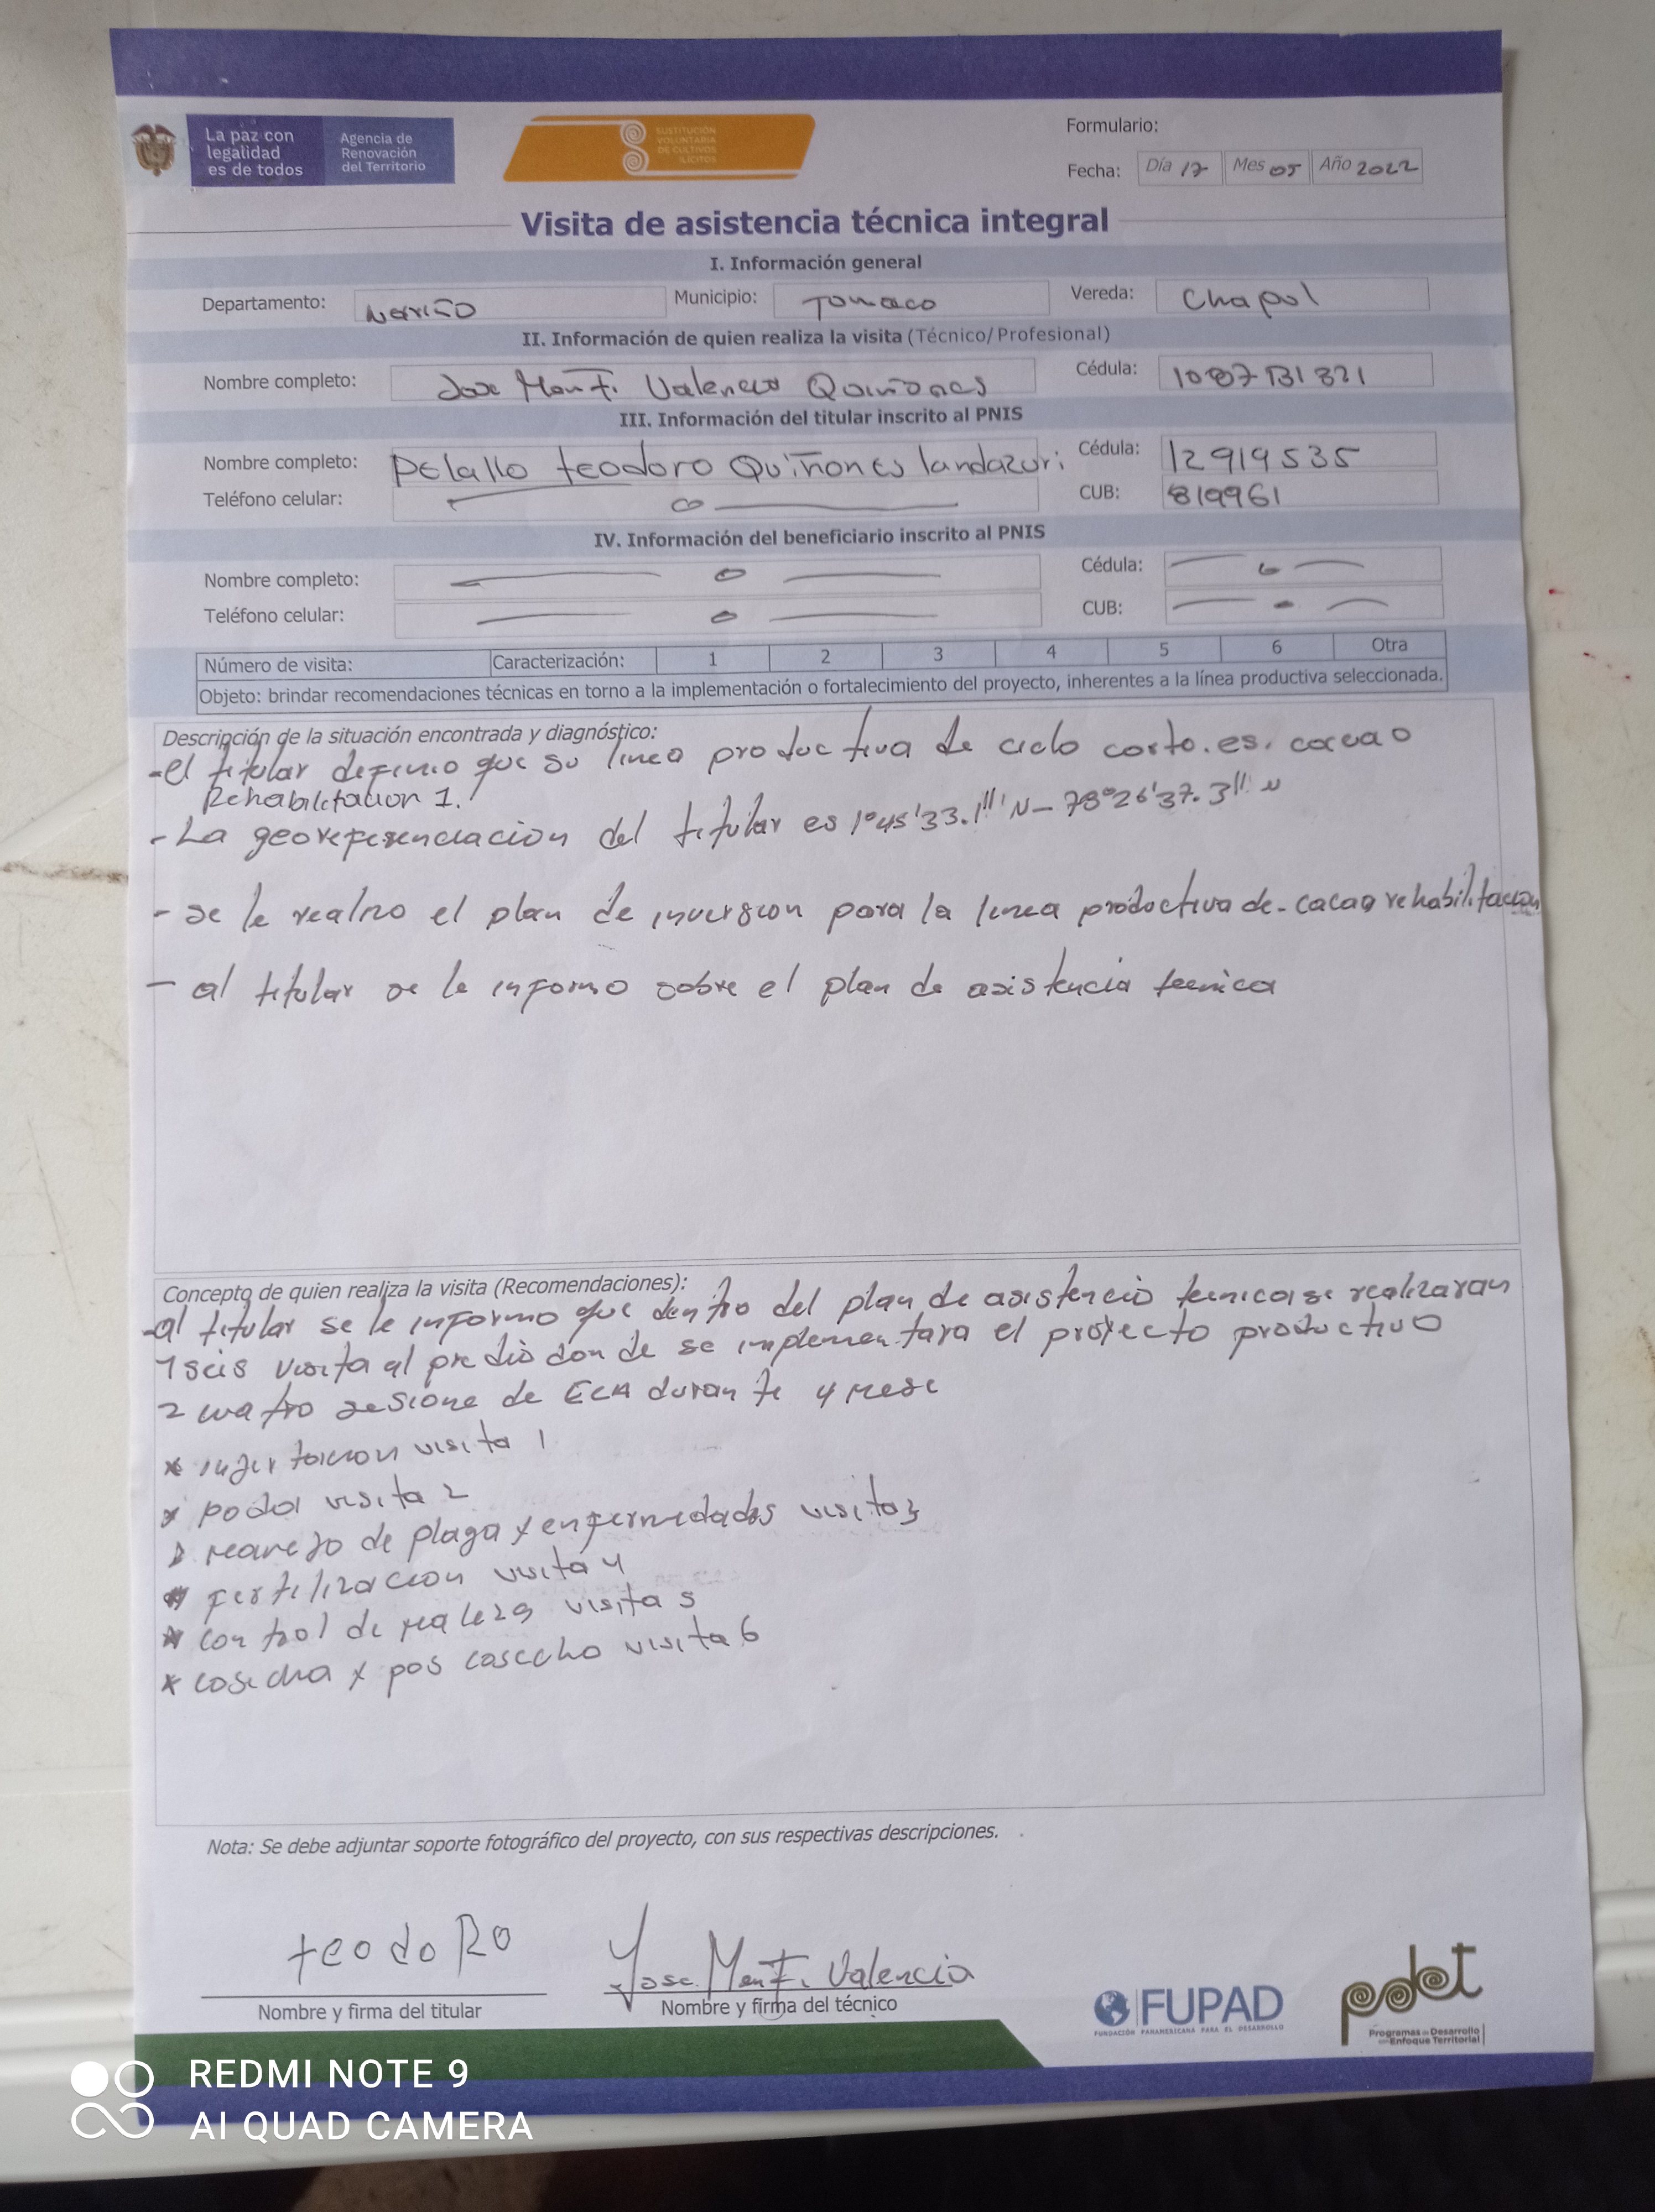 La paz con
legalidad
es de todos
Agencia de
Renovación
del Territorio
SUSTITUCIÓN
VOLUNTARIA
DE CULTIVOS
ILÍCITOS
Formulario:
Fecha: Día 17 Mes 05 Año 2022
Visita de asistencia técnica integral
I. Información general
Departamento: Nariño Municipio: Tumaco Vereda: Chapul
II. Información de quien realiza la visita (Técnico/Profesional)
Nombre completo: Jose Manf. Valencia Quiñones Cédula: 1087131321
III. Información del titular inscrito al PNIS
Nombre completo: Pelallo teodoro Quiñones landazuri Cédula: 12919535
Teléfono celular: CUB: 819961
IV. Información del beneficiario inscrito al PNIS
Nombre completo: Cédula:
Teléfono celular: CUB:
Número de visita: Caracterización: 1 2 3 4 5 6 Otra
Objeto: brindar recomendaciones técnicas en torno a la implementación o fortalecimiento del proyecto, inherentes a la línea productiva seleccionada.
Descripción de la situación encontrada y diagnóstico:
-el titular definio que su linea productiva de ciclo corto. es. cacao
Rehabilitacion 1.
- La georeferenciacion del titular es 1°45'33.1''' N - 78°26'37.3''
- se le realizo el plan de inversion para la linea productiva de - cacao rehabilitacion
- al titular se le informo sobre el plan de asistencia tecnica
Concepto de quien realiza la visita (Recomendaciones):
-al titular se le informo que dentro del plan de asistencia tecnica se realizaran
1 seis visita al predio donde se implementara el proyecto productivo
2 cuatro sesione de ECA durante 4 mese
* injertacion visita 1
* poda visita 2
* manejo de plaga y enfermedades visita 3
* fertilizacion visita 4
* control de maleza visita 5
* cosecha y pos cosecha visita 6
Nota: Se debe adjuntar soporte fotográfico del proyecto, con sus respectivas descripciones.
teodoRo
Jose Manf. Valencia
Nombre y firma del titular
Nombre y firma del técnico
FUPAD
FUNDACIÓN PANAMERICANA PARA EL DESARROLLO
pdet
Programas de Desarrollo
con Enfoque Territorial
REDMI NOTE 9
AI QUAD CAMERA